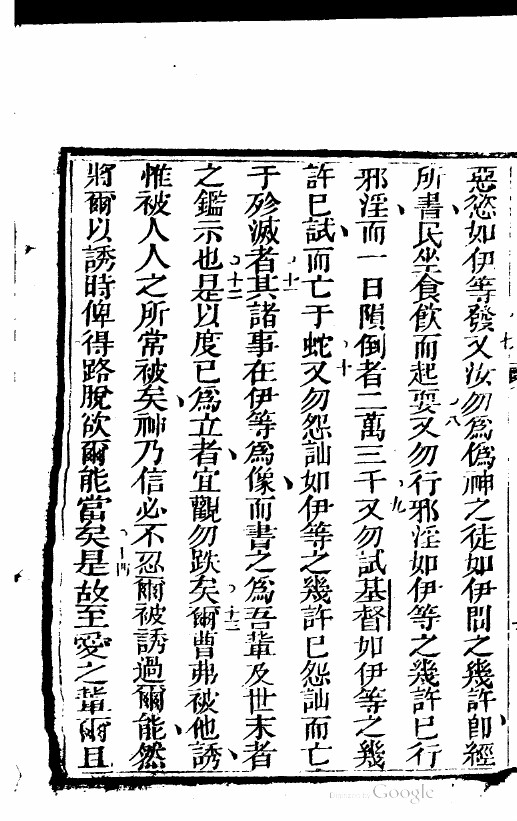 惡慾如伊等發七又汝勿爲僞神之徒如伊間之幾許卽經
所書民坐食飲而起耍八又勿行邪淫如伊等之幾許已行
邪淫而一日隕倒者二萬三千九又勿試基督如伊等之幾
許已試而亡于蛇十又勿怨訕如伊等之幾許已怨訕而亡
于殄滅者十一其諸事在伊等爲像而書之爲吾輩及世末者
之鑑示也十二是以度已爲立者宜觀勿跌矣十三爾曹弗被他誘
惟被人人之所常被矣神乃信必不忍爾被誘過爾能然
將爾以誘時俾得路脫欲爾能當矣十四是故至愛之輩爾且
Digitized by Google